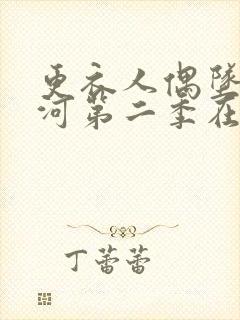 更衣人偶坠
河第二季在
丁蕾蕾